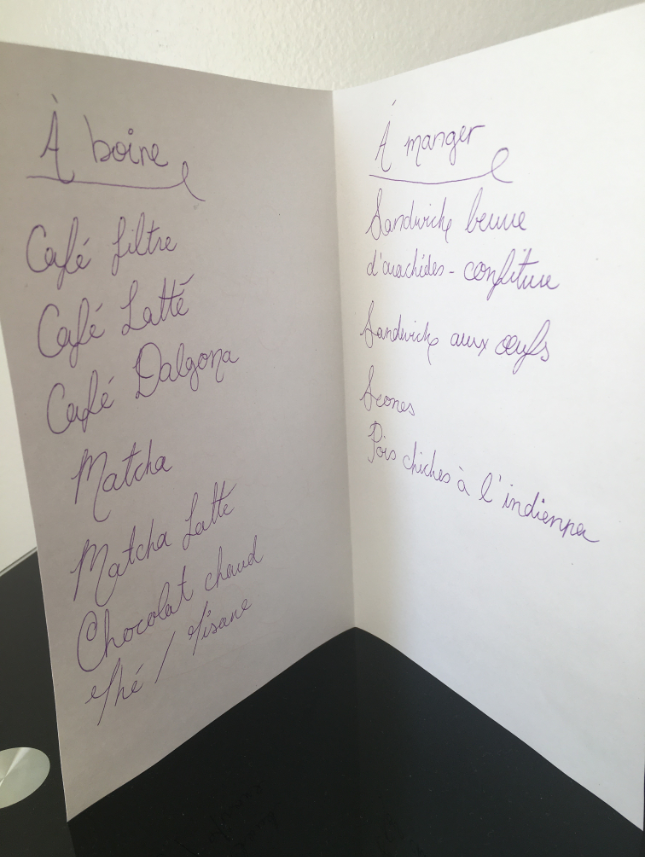 À boire
Café filtre
Café Latté
Café Dalgona
Matcha
Matcha Latté
Chocolat chaud
Thé / Tisane
À manger
Sandwichs beurre
d'arachides - confiture
Sandwichs aux œufs
Scones
Pois chiches à l'indienne